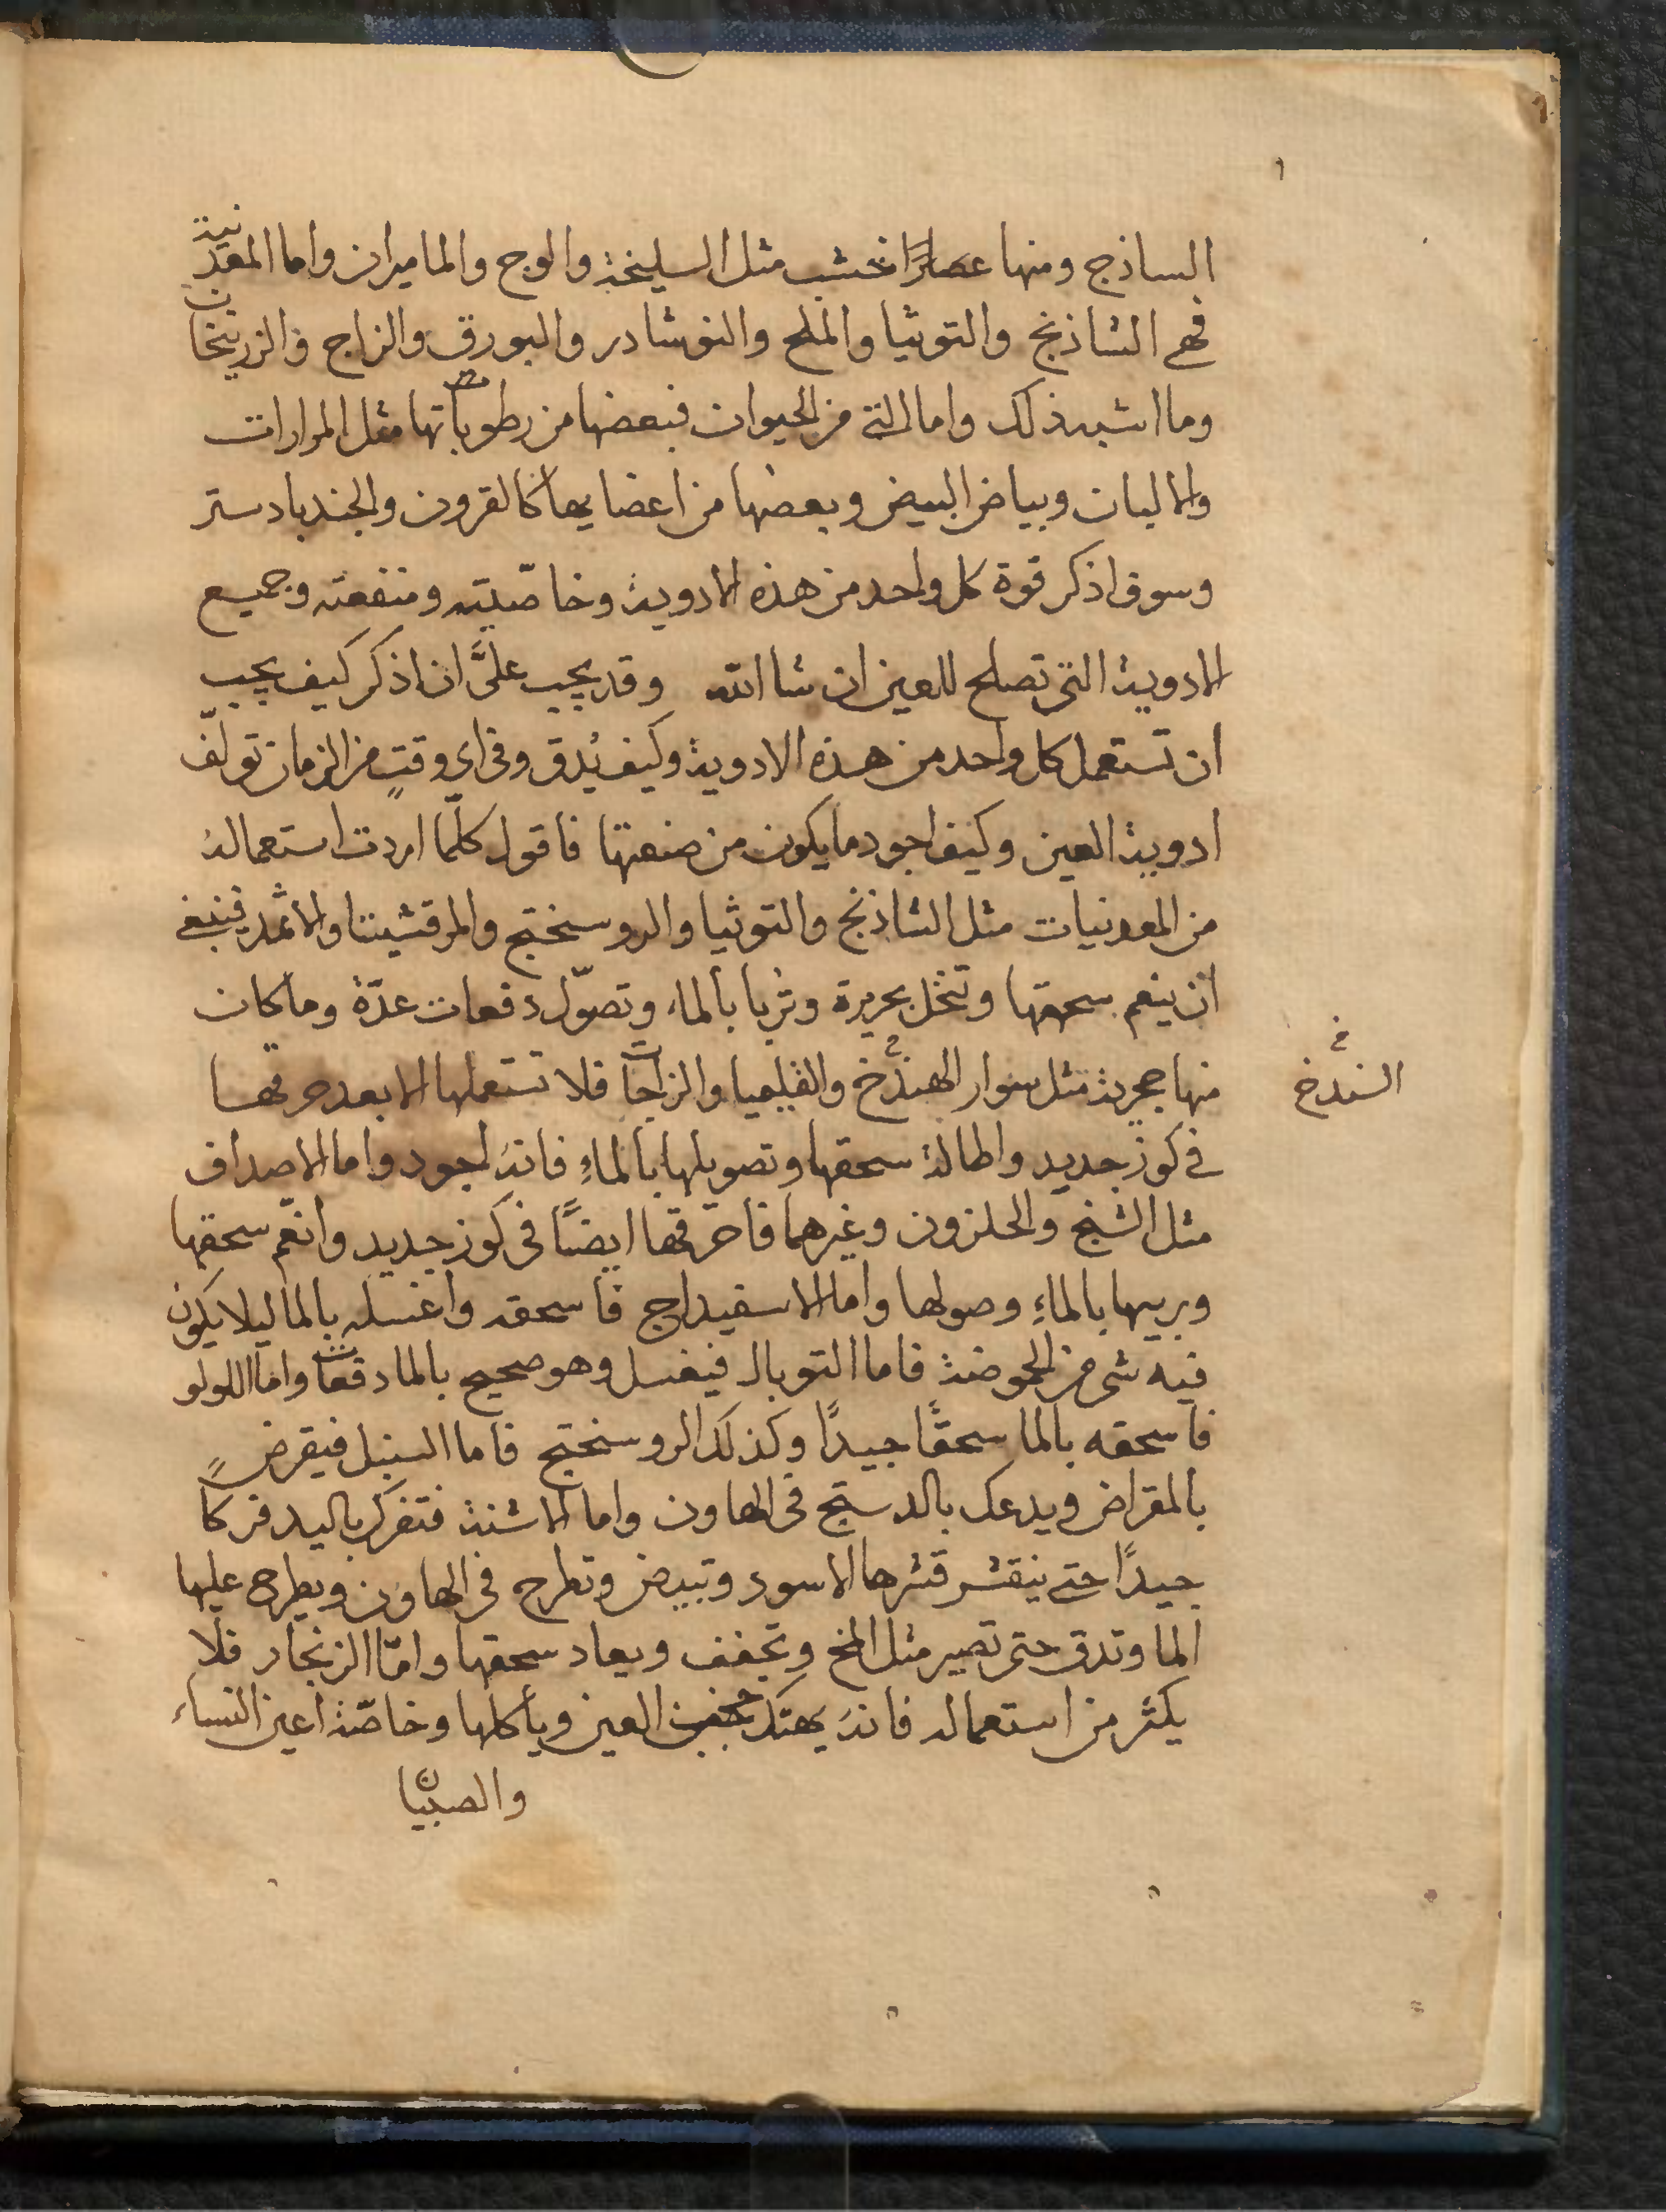 الساذج ومنها عصارا خشب مثل السليخة والوج والماميران واما المعدنية
فهى الشاذنج والتوتيا والملح والنوشادر والبورق والزاج والزرنيخات
وما اشبه ذلك واما التى من الحيوان فبعضها من رطوباتها مثل المرارات
والالبان وبياض البيض وبعضها من اعضايها كالقرون والجندبادستر
وسوف اذكر قوة كل واحد من هذه الادوية وخاصيته ومنفعته وجميع
الادوية التى تصلح للعين ان شا الله وقد يجب علىَّ ان اذكر كيف يجب
ان تستعمل كل واحد من هذه الادوية وكيف يُدق وفى اى وقتٍ من الزمان تولّف
ادوية العين وكيف اجود ما يكون من صنعتها فاقول كلّما اردت استعماله
من المعدنيات مثل الشاذنج والتوتيا والروسختج والمرقشيتا والاثمد فينبغى
ان ينعم سحقها وتنخل بحريرة وتربا بالماء وتصوّل دفعات عدّة وما كان
منها حجرية مثل سوار الهند والقليميا والزاجات فلا تستعملها الا بعد حرقها
فى كوز جديد واطالة سحقها وتصويلها بالماءِ فانه اجود واما الاصداف
مثل الشنج والحلزون وغيرهما فاحرقها ايضًا فى كوز جديد وانعم سحقها
وربيها بالماءِ وصولها واما الاسفيداج فاسحقه واغسله بالما ليلا يكون
فيه شى من الحموضة فاما التوبال فيغسل وهو صحيح بالما دفعات واما اللولو
فاسحقه بالما سحقًا جيدًا وكذلك الروسختج فاما السنبل فيقرض
بالمقراض ويدعك بالدستج فى الهاون واما الاشنة فتفرك باليد فركا
جيدًا حتى ينقشر قشرها الاسود وتبيض وتطرح فى الهاون ويطرح عليها
الما وتدق حتى تصير مثل المخ وتجفف ويعاد سحقها وامّا الزنجار فلا
يكثر من استعماله فانه يهتك العين ويأكلها وخاصّة اعين النساء
والصبيان